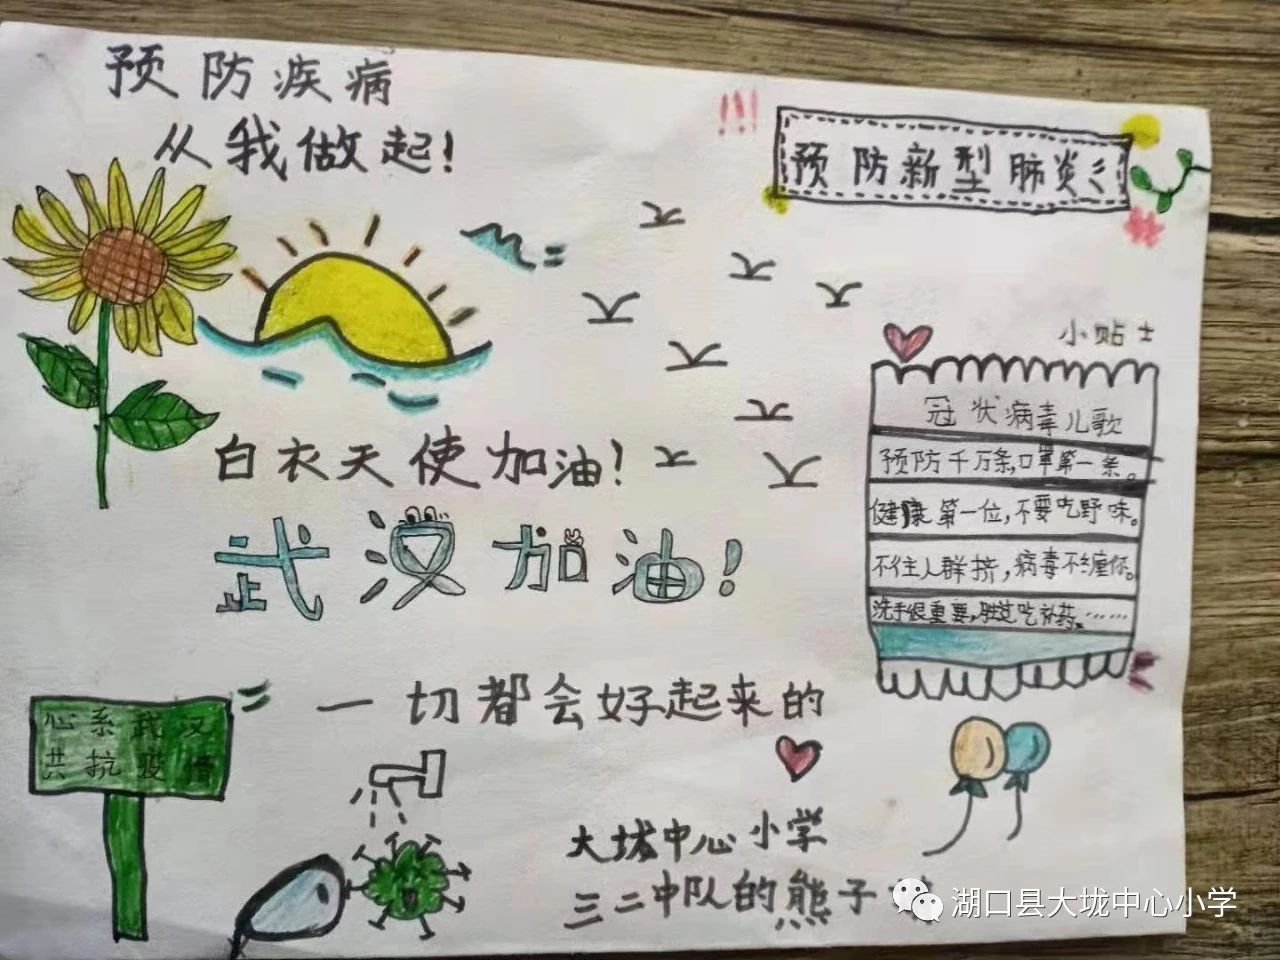 预防疾病
从我做起!
!!!
预防新型肺炎
小贴士
冠状病毒儿歌
预防千万条,口罩第一条。
健康第一位,不要吃野味。
不往人群挤,病毒不缠你。
洗手很重要,胜过吃补药。……
白衣天使加油!
武汉加油!
一切都会好起来的
心系武汉
共抗疫情
大垅中心小学
三二中队的熊子
湖口县大垅中心小学